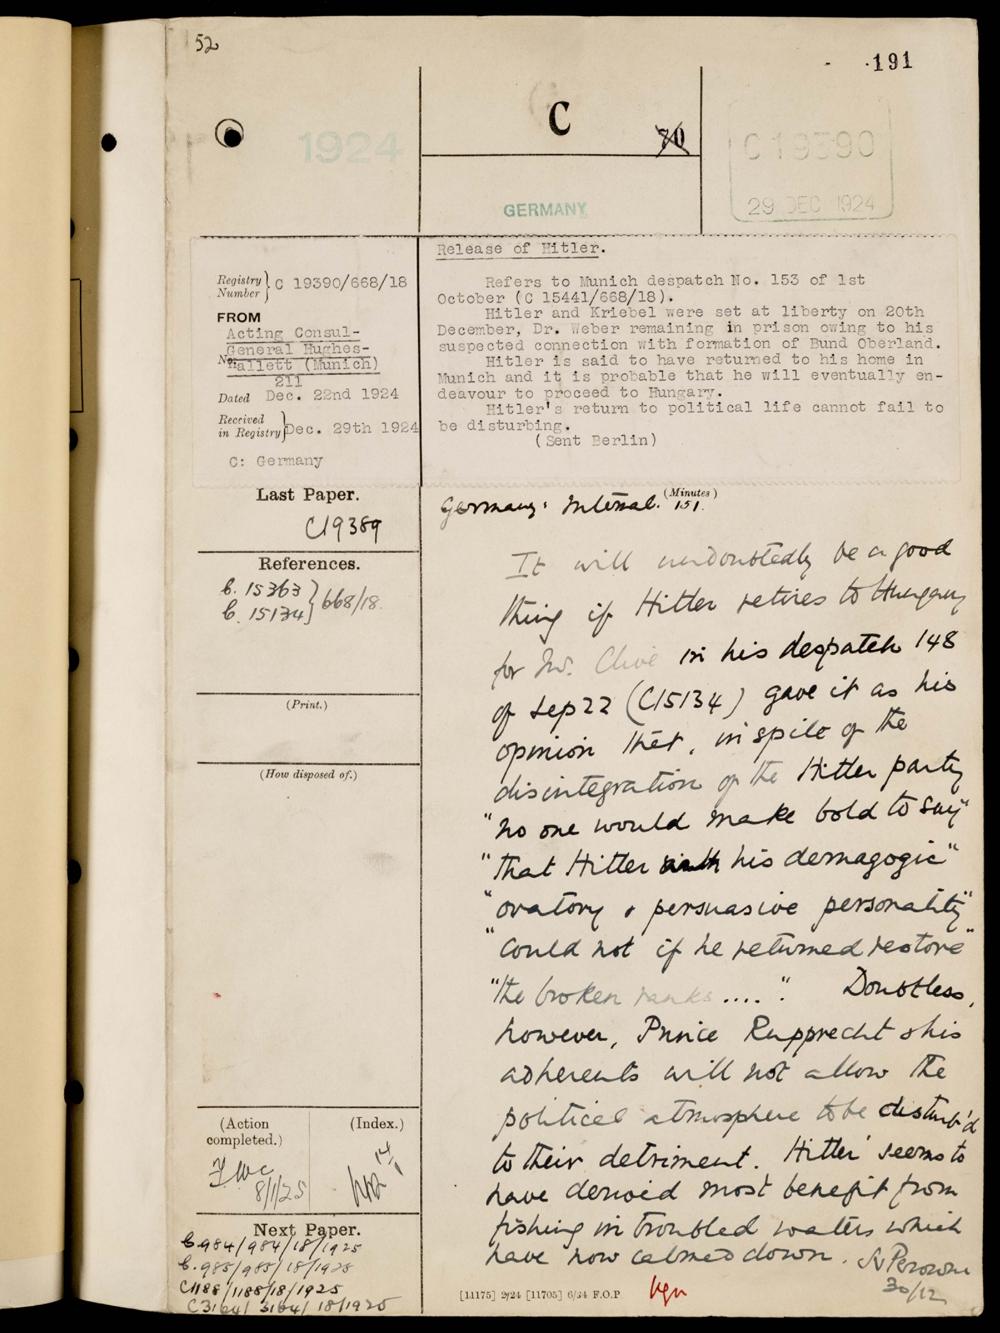 52
191
C
70
1924
GERMANY
C 19390
29 DEC 1924
Registry Number } C 19390/668/18
FROM
Acting Consul-
General Hughes-
No. Hallett (Munich)
211
Dated Dec. 22nd 1924
Received in Registry } Dec. 29th 1924
C: Germany
Release of Hitler.
Refers to Munich despatch No. 153 of 1st
October (C 15441/668/18).
Hitler and Kriebel were set at liberty on 20th
December, Dr. Weber remaining in prison owing to his
suspected connection with formation of Bund Oberland.
Hitler is said to have returned to his home in
Munich and it is probable that he will eventually en-
deavour to proceed to Hungary.
Hitler's return to political life cannot fail to
be disturbing.
(Sent Berlin)
Last Paper.
C19389
References.
C. 15363
C. 15134 } 668/18.
(Print.)
(How disposed of.)
(Action completed.)
8/1/25
(Index.)
Next Paper.
C984/984/18/1925
C.985/985/18/1925
C1188/1188/18/1925
C3164/3164/18/1925
(Minutes)
Germany: Internal. 151.
It will undoubtedly be a good
thing if Hitler retires to Hungary
for Mr. Clive in his despatch 148
of Sep 22 (C15134) gave it as his
opinion that, in spite of the
disintegration of the Hitler party
"no one would make bold to say"
"that Hitler with his demagogic"
"oratory & persuasive personality"
"could not if he returned restore"
"the broken ranks ...." Doubtless,
however, Prince Rupprecht & his
adherents will not allow the
political atmosphere to be disturb'd
to their detriment. Hitler seems to
have derived most benefit from
fishing in troubled waters which
have now calmed down. Perowne
30/12
[11175] 2/24 [11705] 6/24 F.O.P